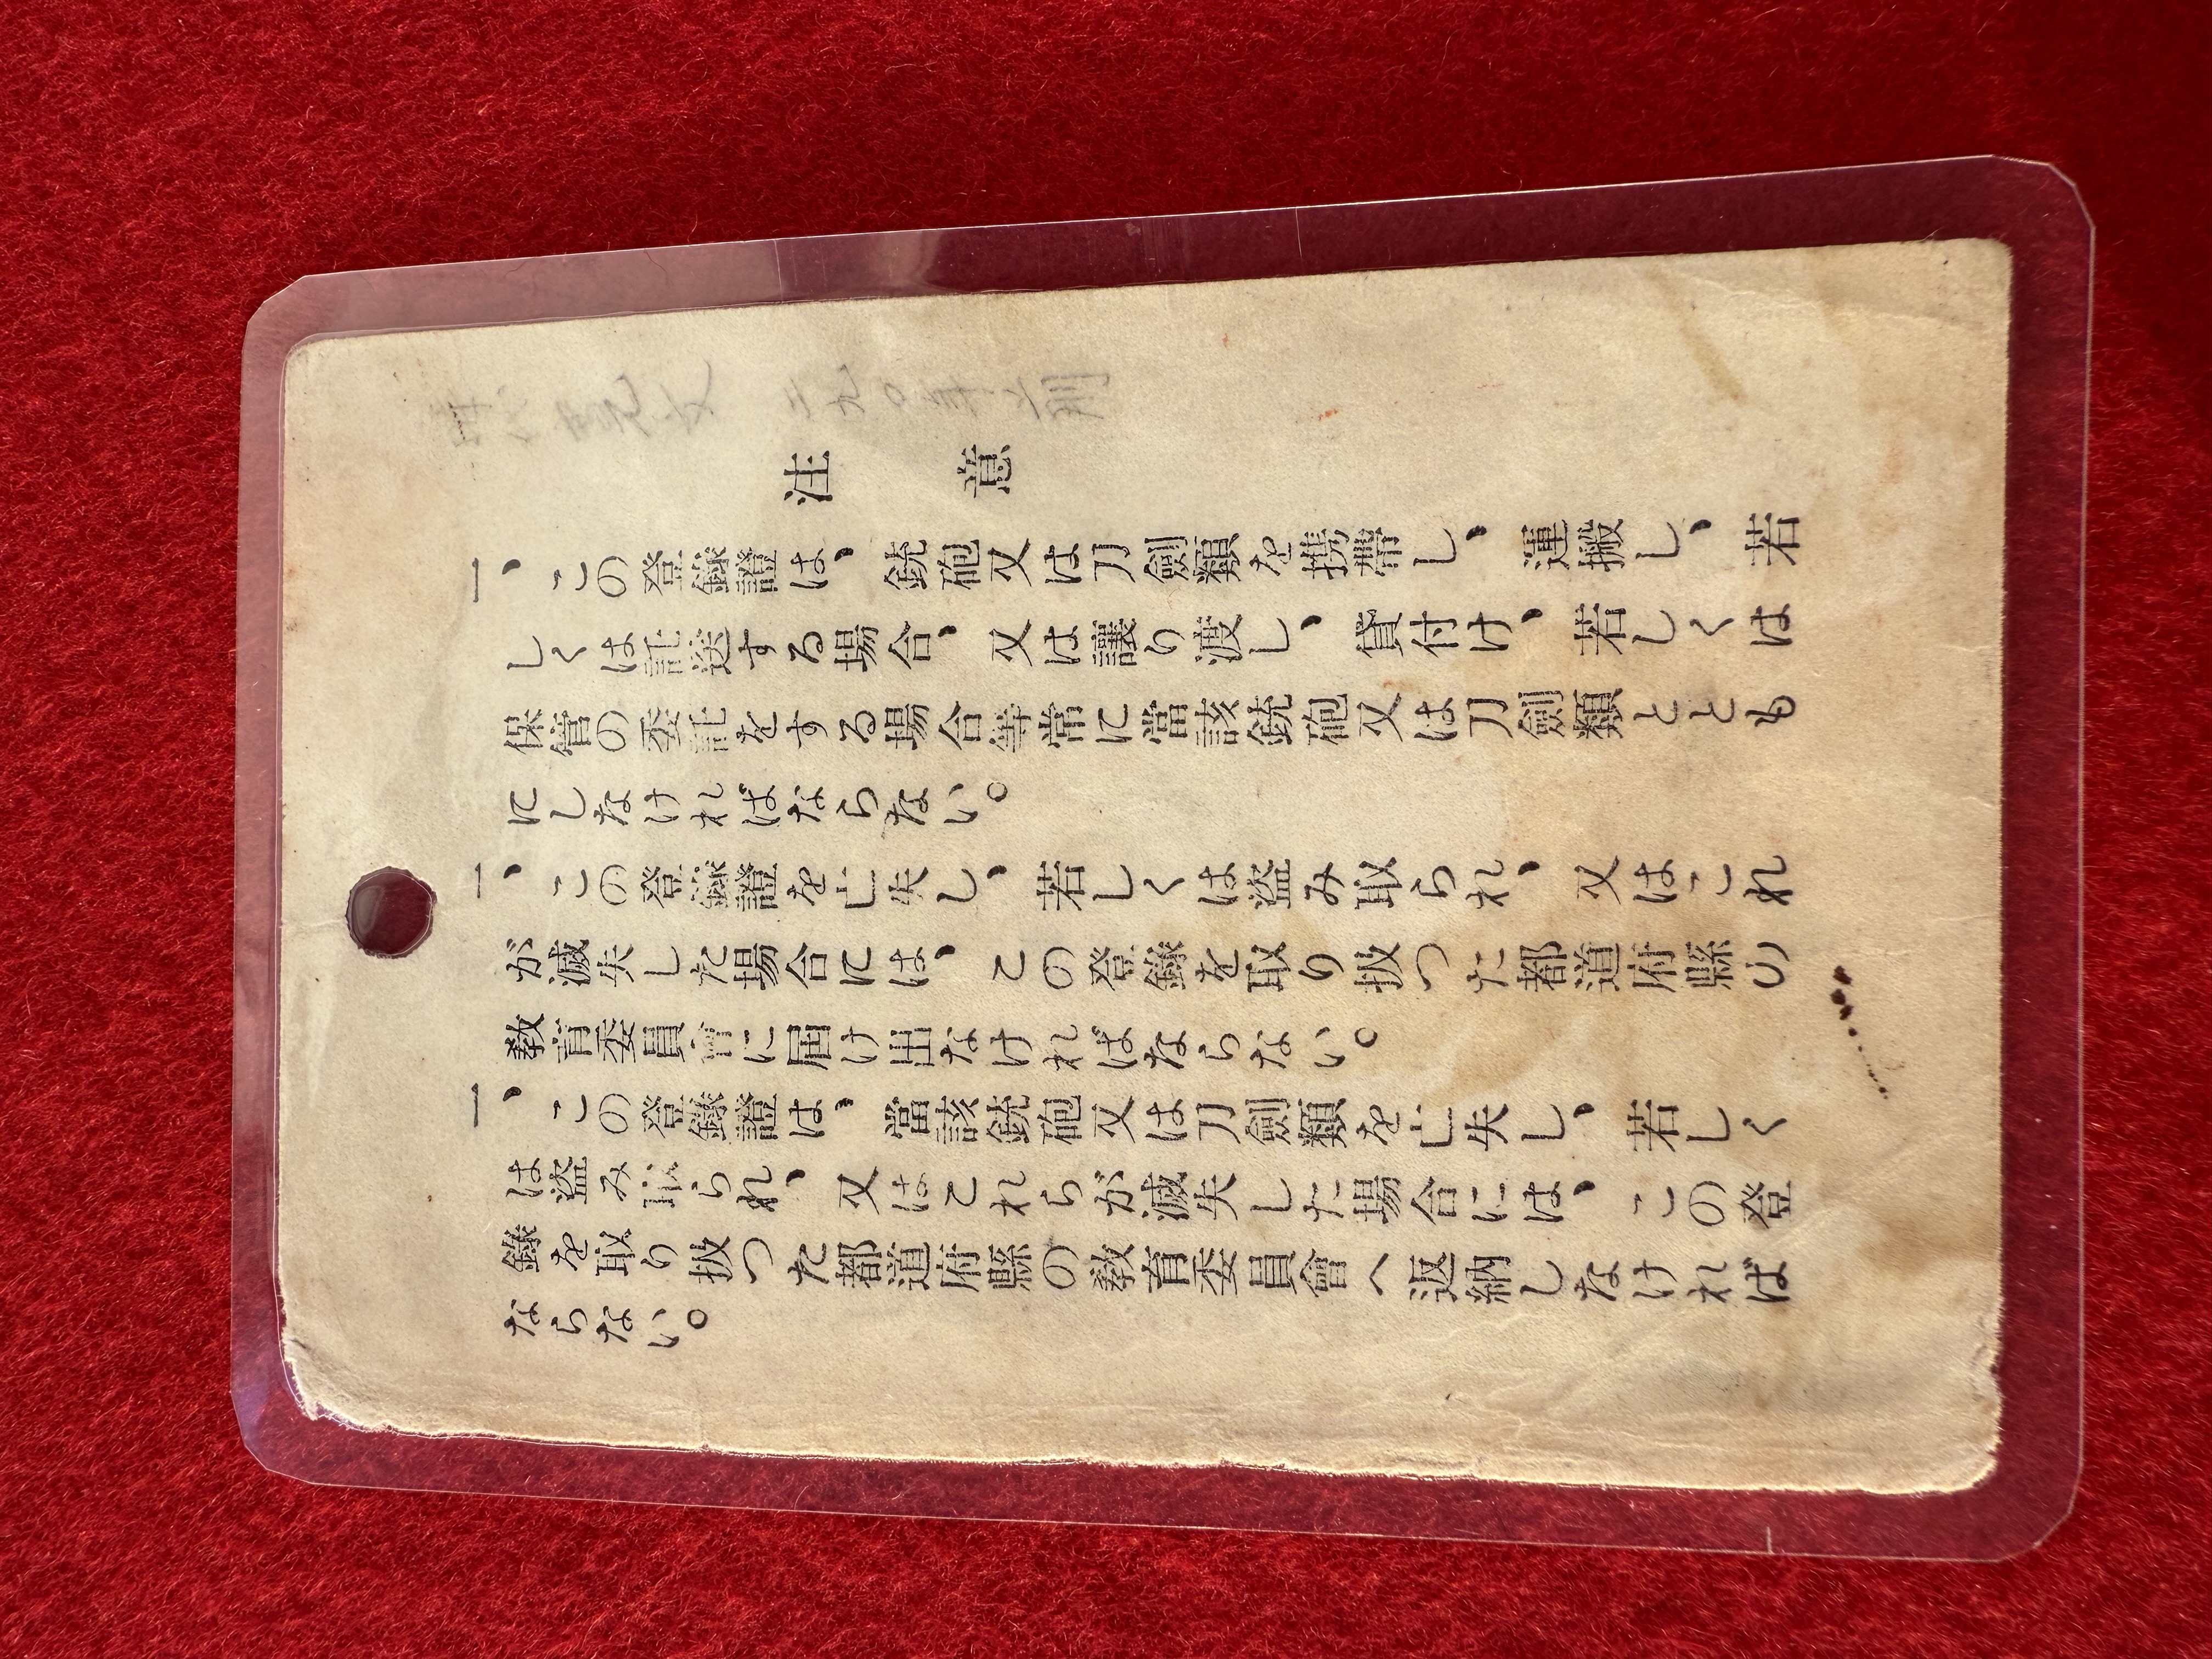 注　意
一、この登録證は、銃砲又は刀劍類を携帶し、運搬し、若
しくは託送する場合、又は讓り渡し、貸付け、若しくは
保管の委託をする場合等常に當該銃砲又は刀劍類ととも
にしなければならない。
一、この登録證を亡失し、若しくは盜み取られ、又はこれ
が滅失した場合には、この登録を取り扱つた都道府縣の
教育委員會に届け出なければならない。
一、この登録證は、當該銃砲又は刀劍類を亡失し、若しく
は盜み取られ、又はこれらが滅失した場合には、この登
録を取り扱つた都道府縣の教育委員會へ返納しなければ
ならない。